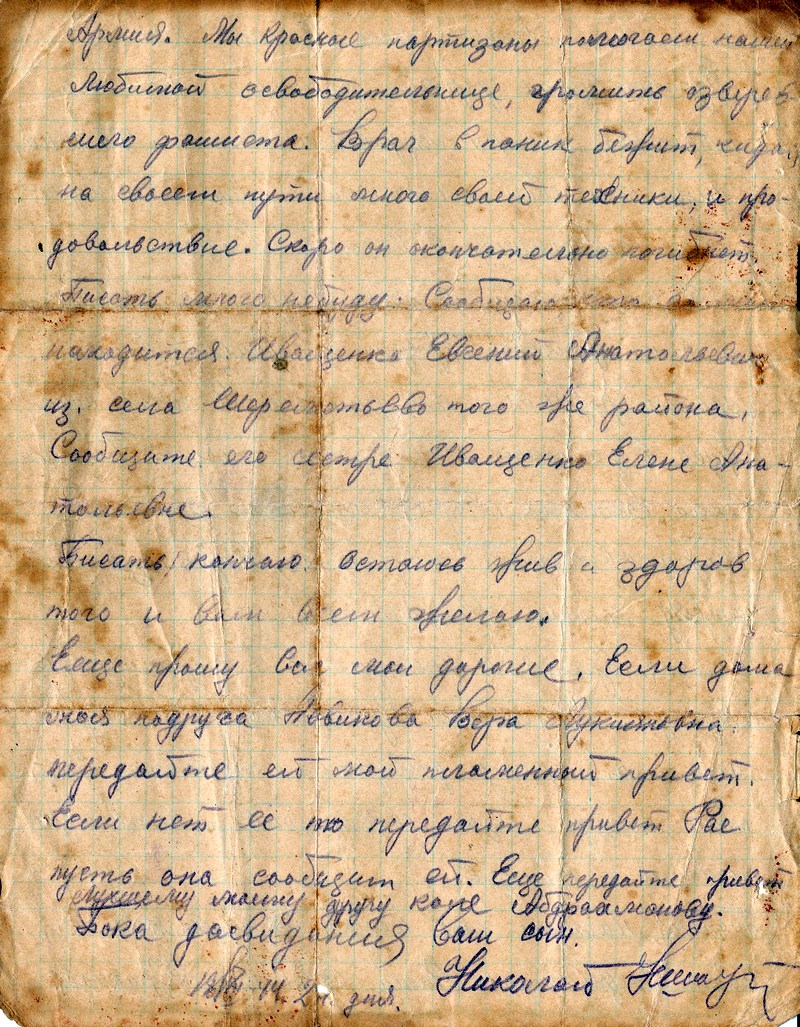 Армия. Мы красные партизаны помогаем нашей
любимой освободительнице, громить озверев-
шего фашиста. Враг в панике бежит, кидая
на своем пути много своей техники, и про-
довольствие. Скоро он окончательно погибнет.
Писать много небуду. Сообщаю что
находится Иващенко Евгений Анатольевич
из села Шереметьево того же района.
Сообщите его сестре Иващенко Елене Ана-
тольевне.
Писать кончаю. Остаюсь жив и здоров
того и вам всем желаю.
Еще прошу вас мои дорогие. Если дома
моя подруга Новикова Вера Лукинтовна
передайте ей мой пламенный привет.
Если нет ее то передайте привет Рае
пусть она сообщит ей. Еще передайте привет
Лучшему моему другу коле Абдрахманову.
Пока досвидания Ваш сын.
44 2 дня. Николай